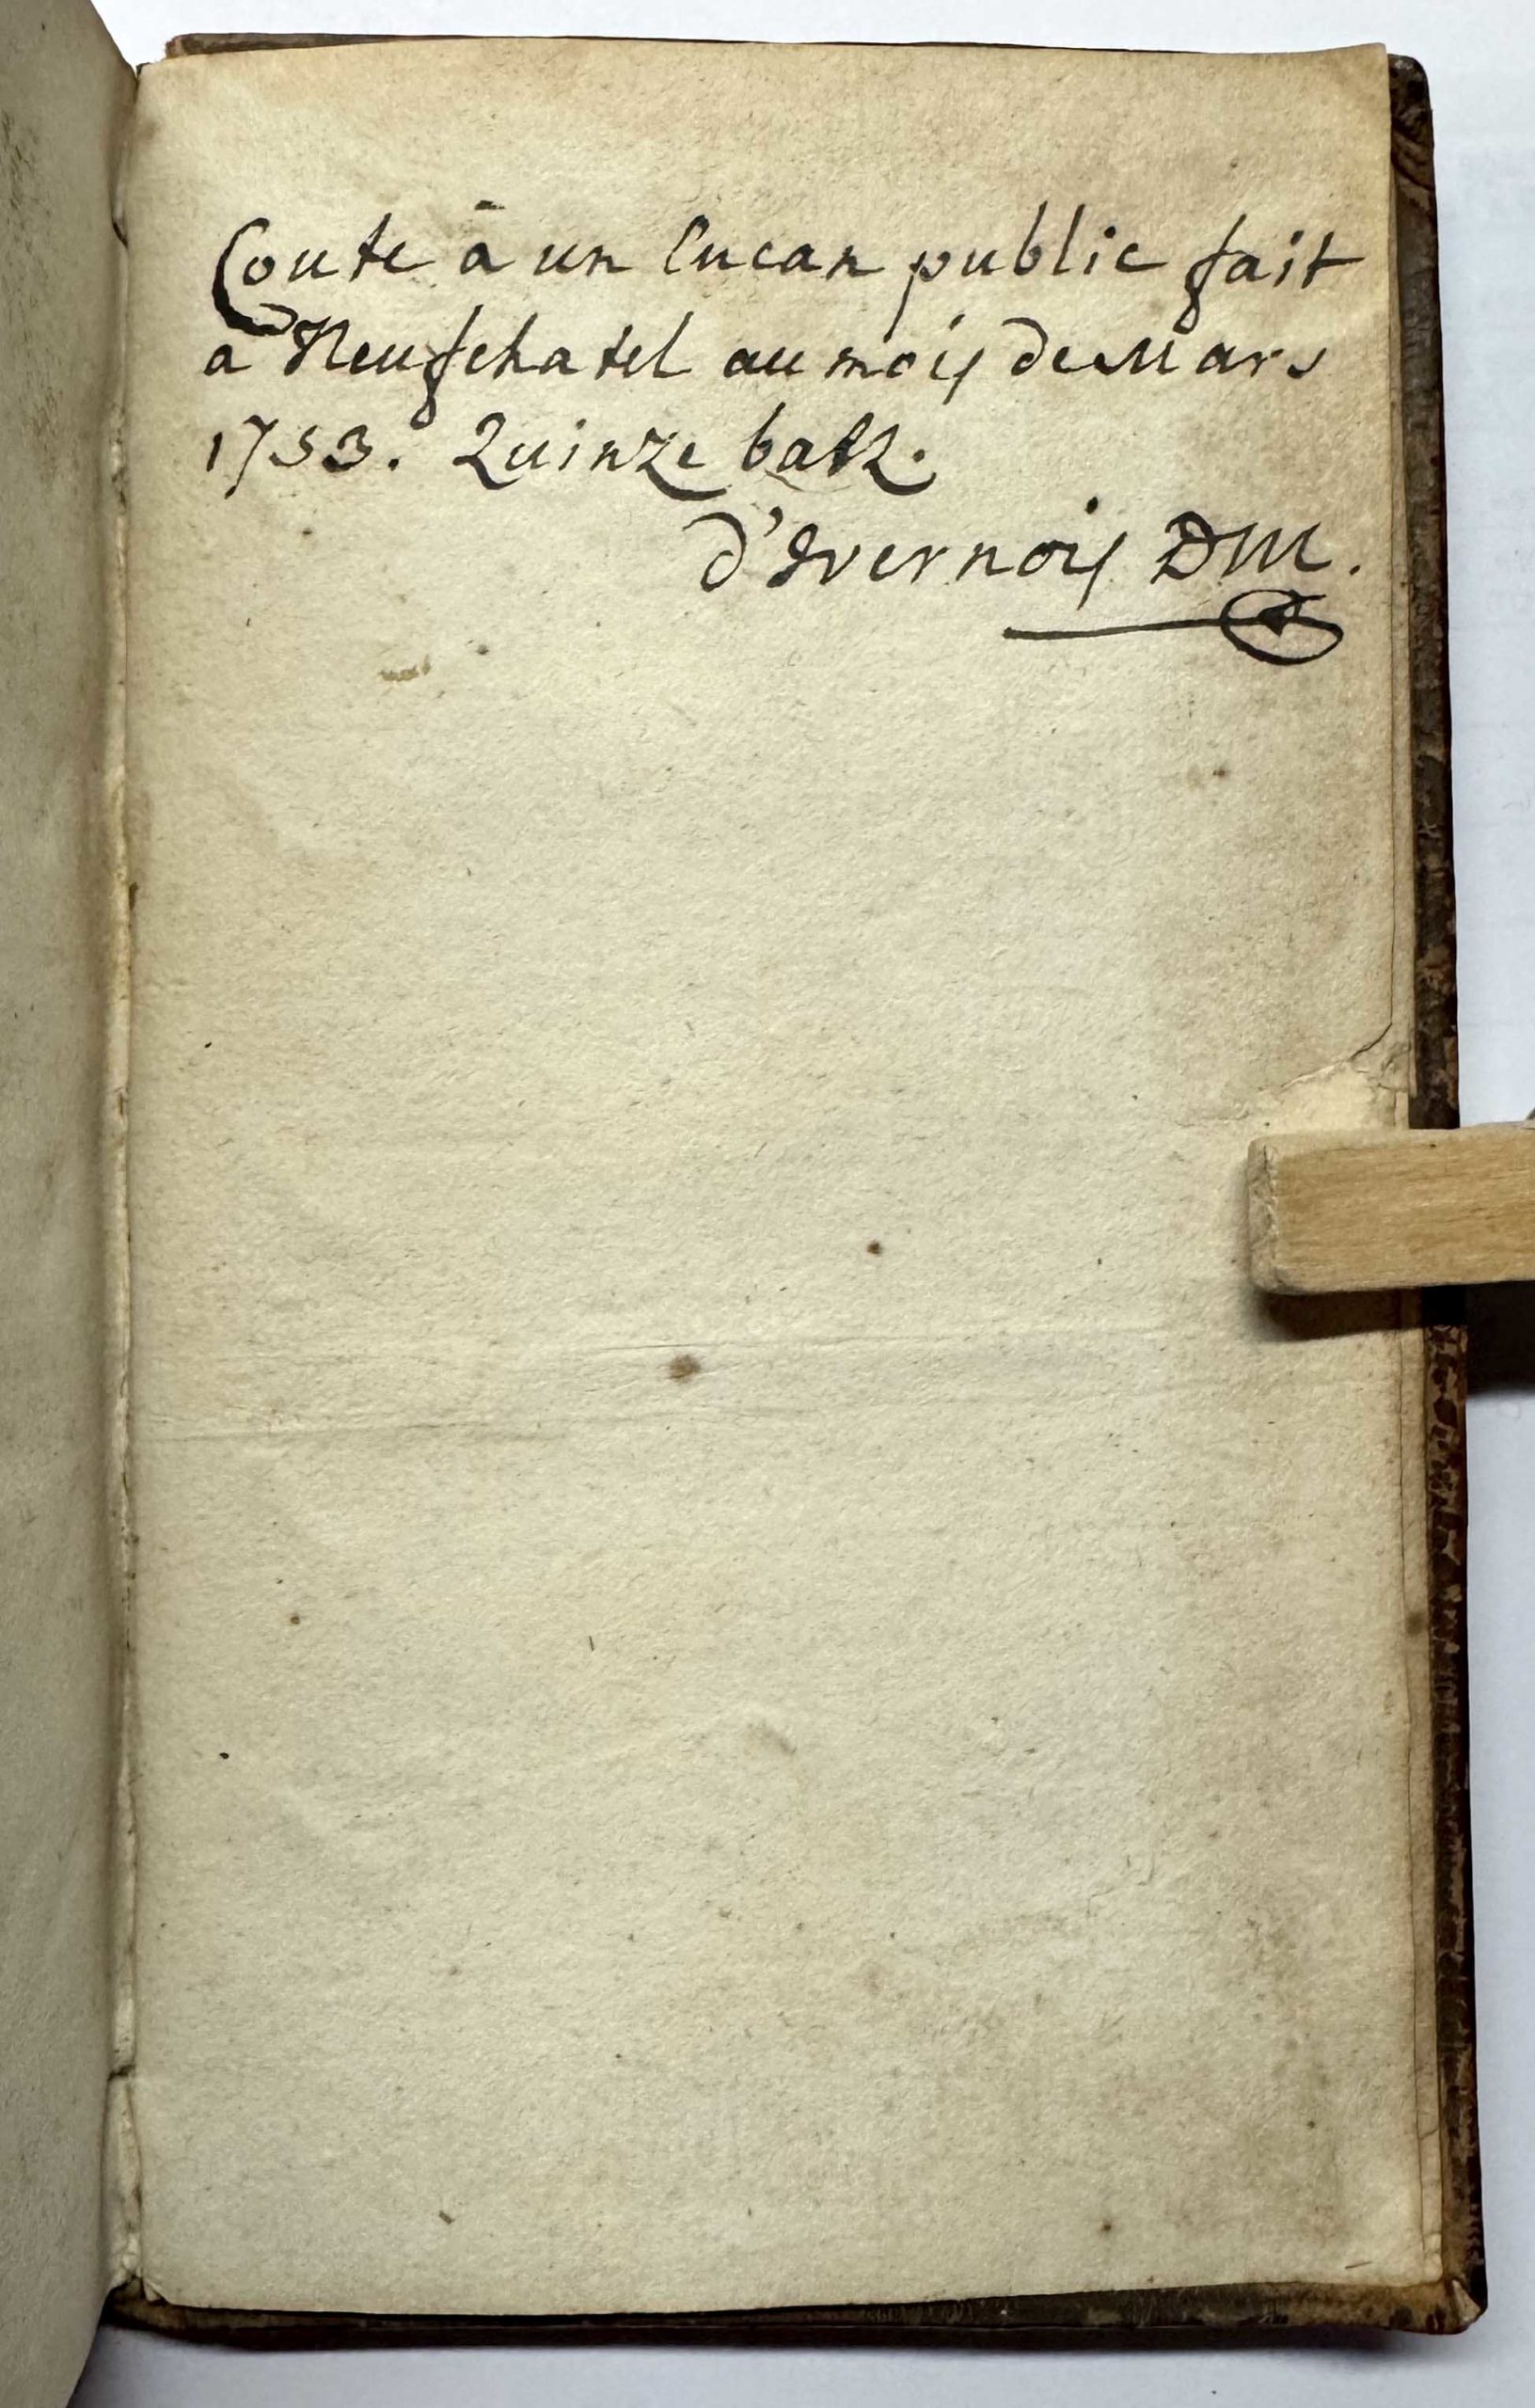 Coute à un Encan public fait
a Neufchatel au mois de Mars
1753. Quinze batz.
d'Ivernois DM.